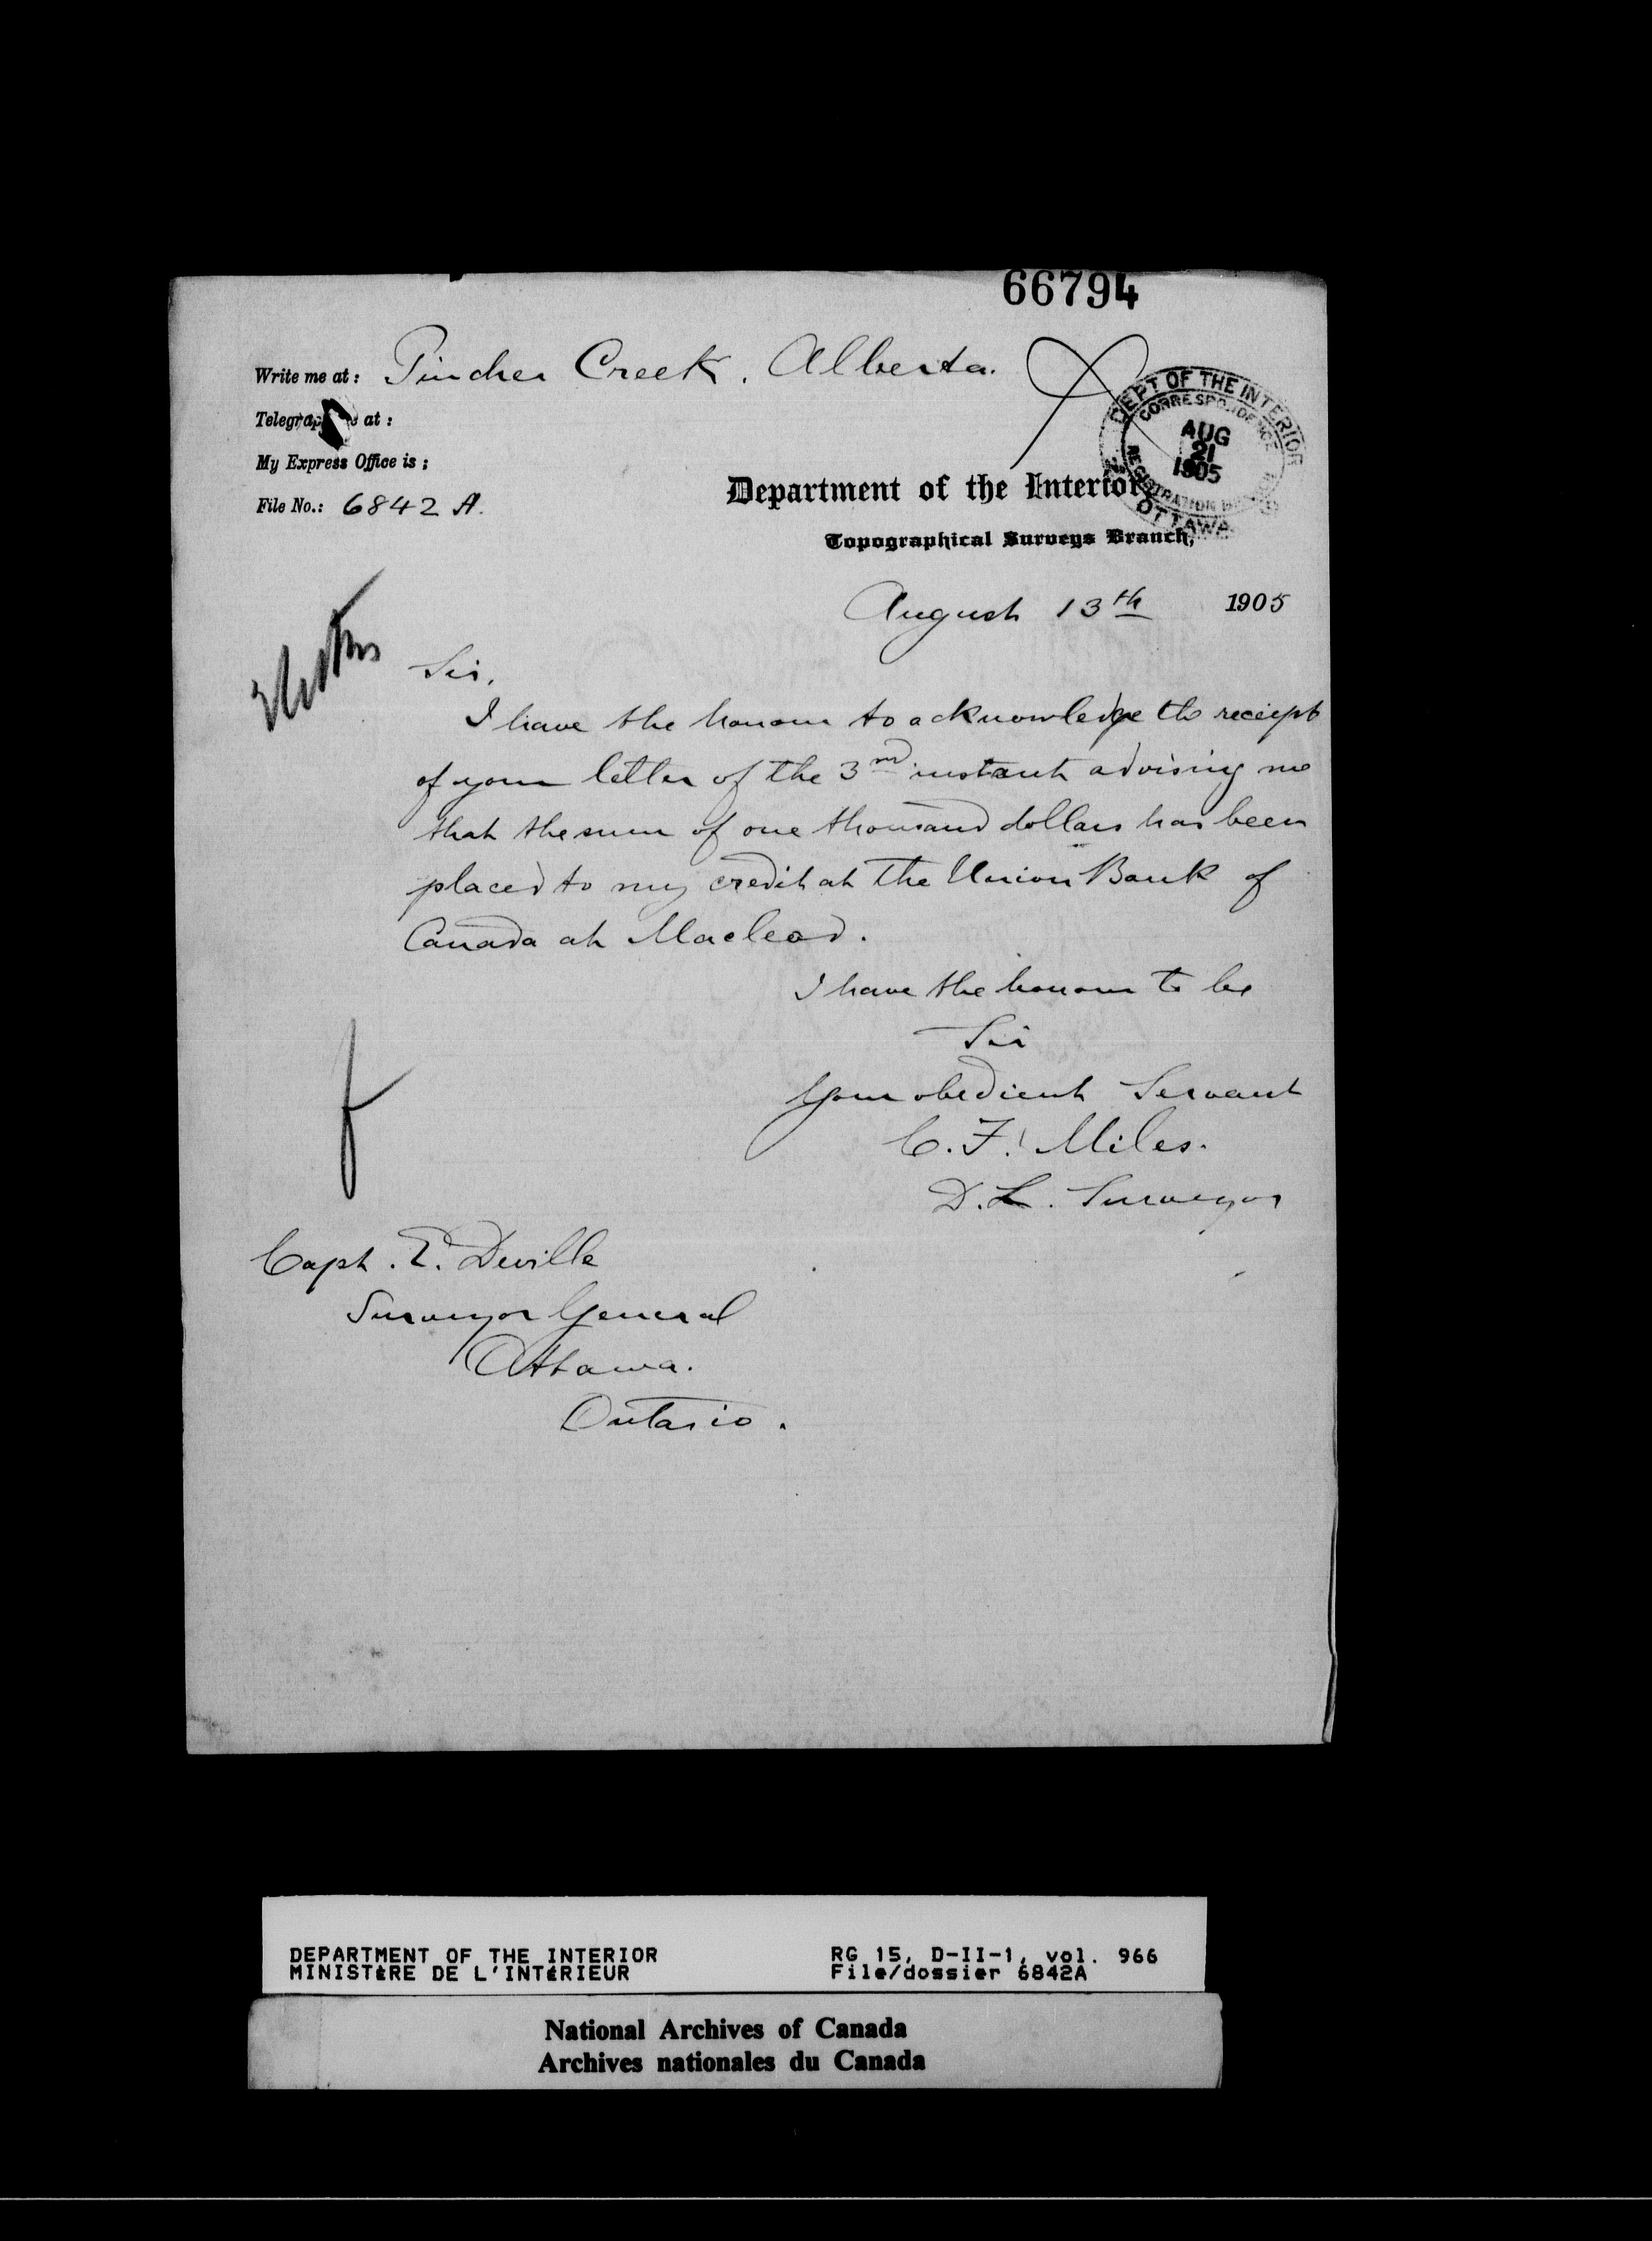 66794
Write me at: Pincher Creek. Alberta.
Telegraph me at:
My Express Office is:
File No.: 6842 A.
DEPT OF THE INTERIOR
CORRESPONDENCE
AUG
21
1905
REGISTRATION
OTTAWA
Department of the Interior,
Topographical Surveys Branch,
August 13th 1905
Sir,
I have the honour to acknowledge the receipt
of your letter of the 3rd instant advising me
that the sum of one thousand dollars has been
placed to my credit at the Union Bank of
Canada at Macleod.
I have the honour to be
Sir
Your obedient Servant
C. F. Miles.
D. L. Surveyor
Capt. E. Deville
Surveyor General
Ottawa.
Ontario.
DEPARTMENT OF THE INTERIOR
MINISTÈRE DE L'INTÉRIEUR
RG 15, D-II-1, vol. 966
File/dossier 6842A
National Archives of Canada
Archives nationales du Canada